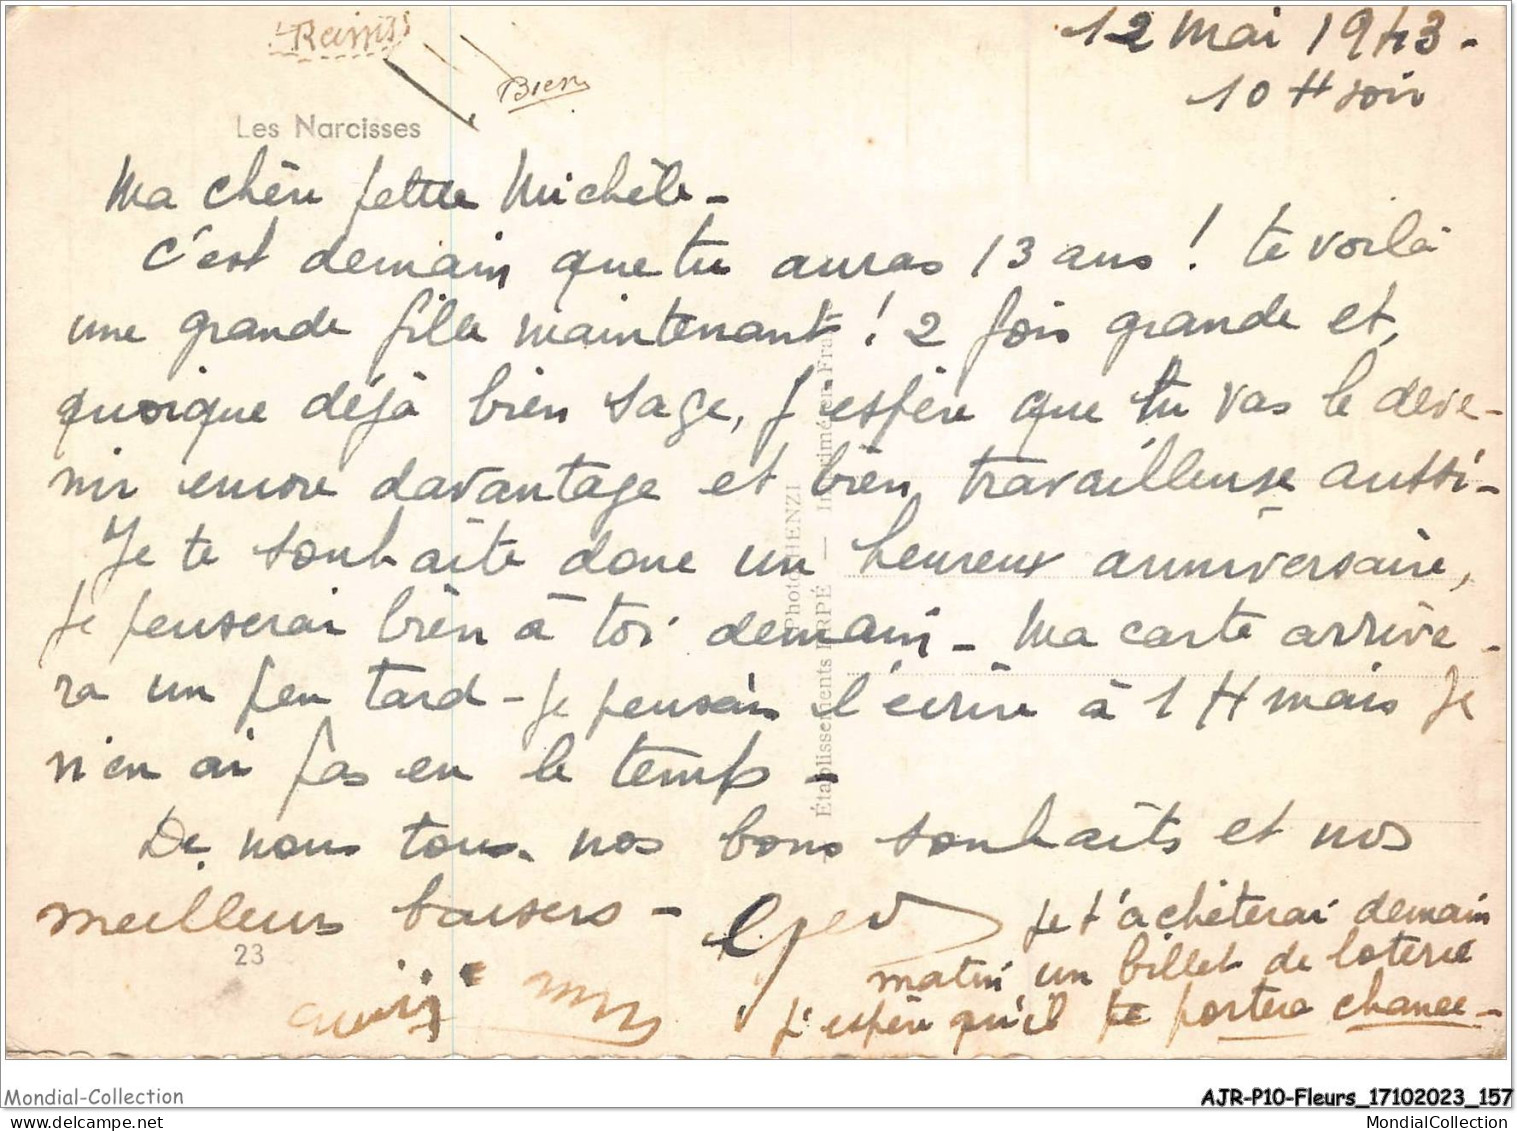 12 mai 1943.
10 H soir
Bien
Les Narcisses
Ma chère petite Michèle -
C'est demain que tu auras 13 ans ! te voilà
une grande fille maintenant ! 2 fois grande et,
quoique déjà bien sage, j'espère que tu vas le deve-
nir encore davantage et bien travailleuse aussi -
Je te souhaite donc un heureux anniversaire,
Je penserai bien à toi demain - Ma carte arrive-
ra un peu tard - Je pensais l'écrire à 1 H mais je
n'en ai pas eu le temps -
De nous tous nos bons souhaits et nos
meilleurs baisers -
Je t'achèterai demain
matin un billet de loterie
J'espère qu'il te portera chance -
23
Photo HENZI
Établissements — Imprimé en
Mondial-Collection
AJR-P10-Fleurs_17102023_157
MondialCollection